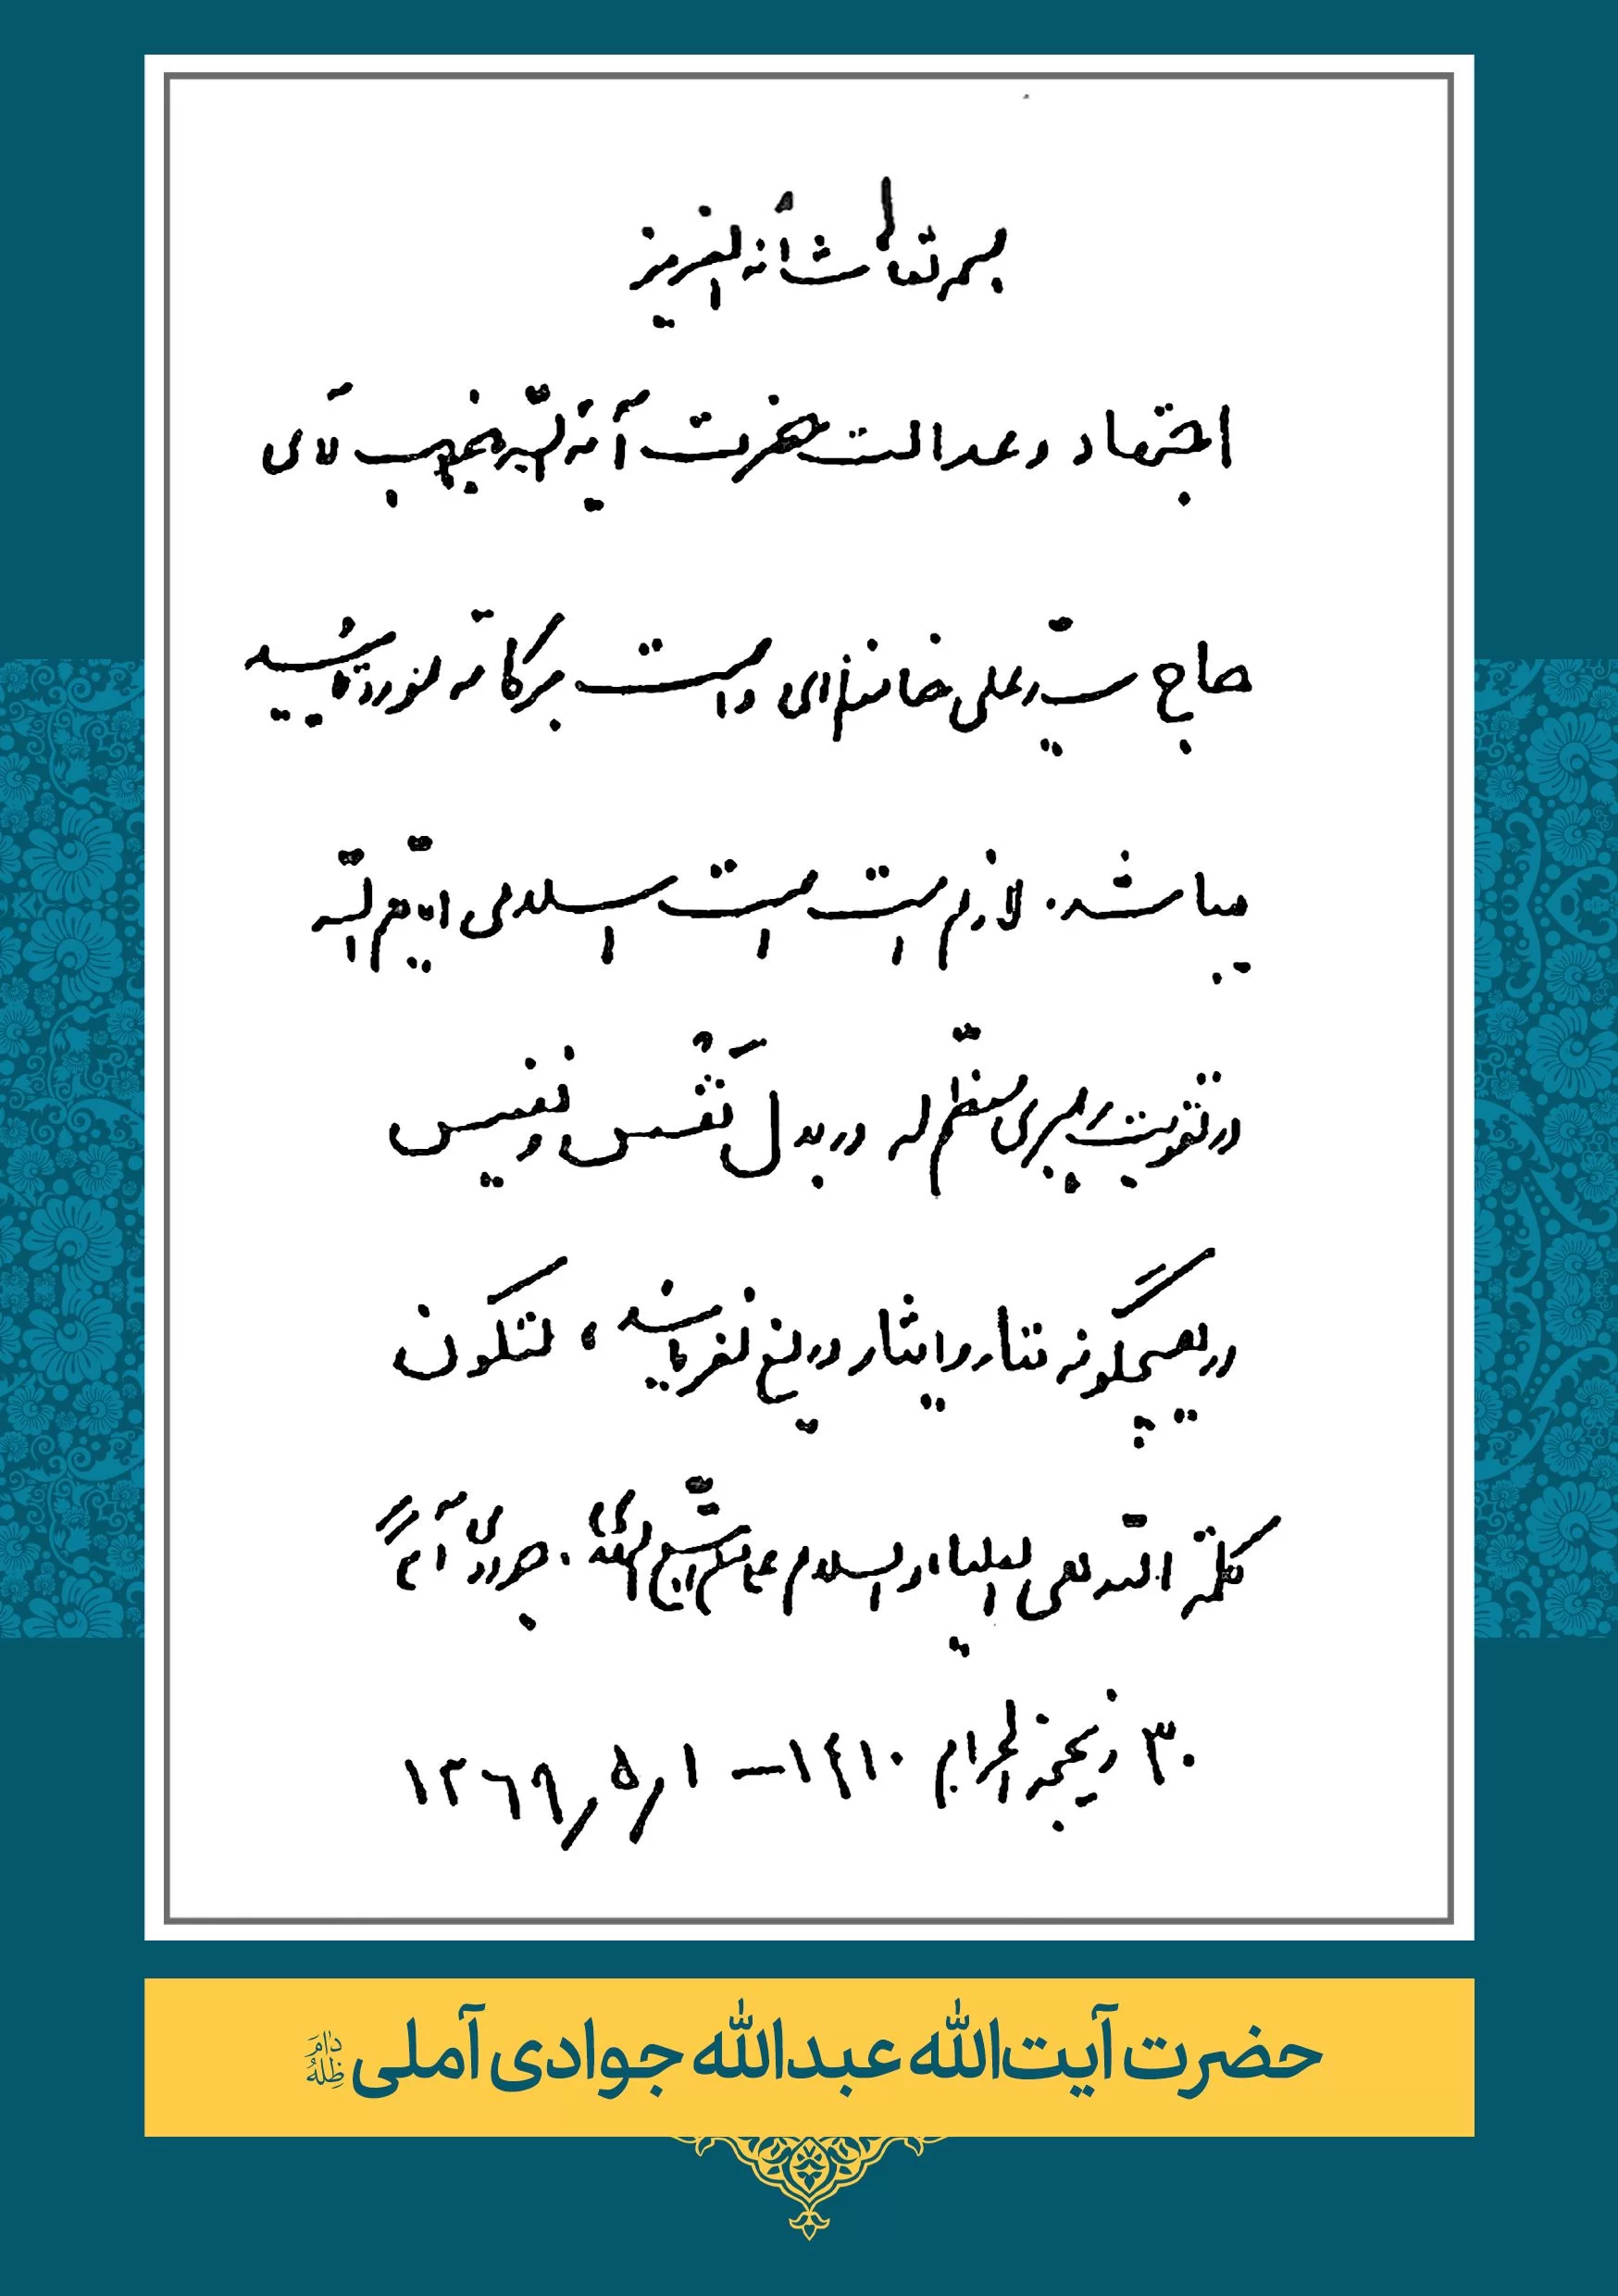 بسمه تعالی شأنه العزیز
اجتهاد و عدالت حضرت آیة الله جناب آقای
حاج سیّد علی خامنه‌ای دامت برکاته مورد تأیید
میباشد. لازم است امت اسلامی ایّدهم الله
در تقویت رهبری معظّم له در بذل نَفْس و نفیس
و هیچگونه نثار و ایثار دریغ نفرمایند، لتکون
کلمة الله هی العلیا، و السلام علی من اتّبع الهدی. جوادی آملی
۳۰ ذیحجة الحرام ۱۴۱۰ – ۱/۵/۱۳۶۹
حضرت آیت‌الله عبدالله جوادی آملی دٰامَ ظِلُّهُ